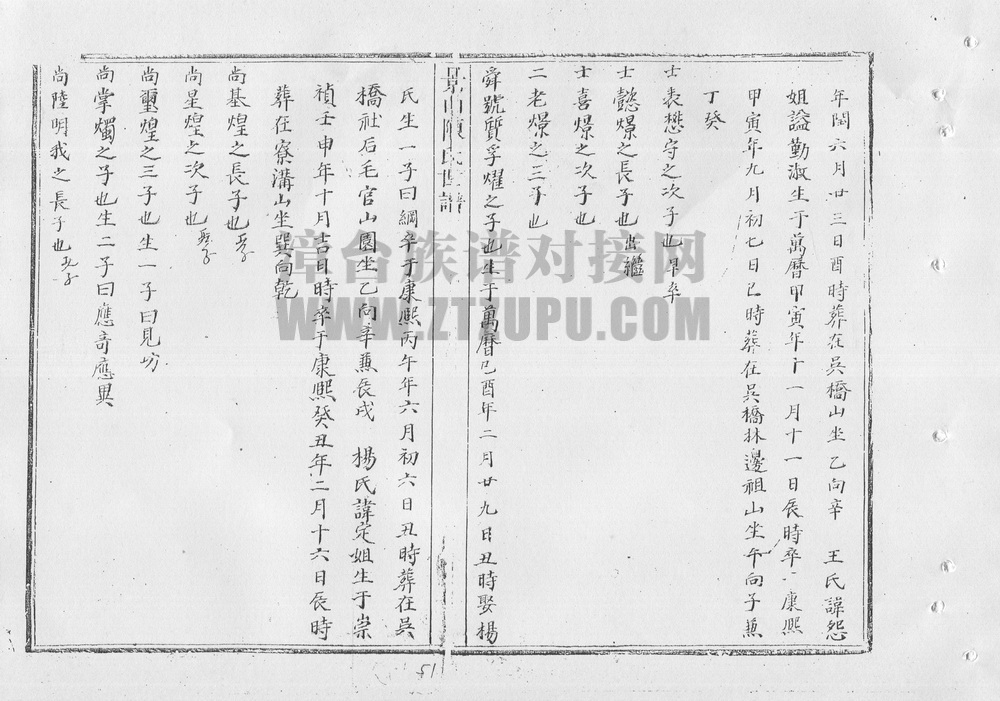 年閏六月廿三日酉時葬在吳橋山坐乙向辛 王氏諱怨
姐謚勤淑生于萬曆甲寅年十一月十一日辰時卒 康熙
甲寅年九月初七日巳時葬在吳橋林邊祖山坐午向子兼
丁癸
士表懋守之次子也早卒
士懿燝之長子也出繼
士喜燝之次子也
二老燝之三子也
舜號質孚燿之子也生于萬曆己酉年二月廿九日丑時娶楊
景山陳氏世譜
氏生一子曰綱卒于康熙丙午年六月初六日丑時葬在吳
橋社后毛官山園坐乙向辛兼辰戌 楊氏諱定姐生于崇
禎壬申年十月吉日時卒于康熙癸丑年二月十六日辰時
葬在寮溝山坐巽向乾
尚基煌之長子也 子
尚星煌之次子也 子
尚璽煌之三子也生一子曰見坊
尚掌燭之子也生二子曰應奇應異
尚陸明我之長子也 子
51
章台族谱对接网
WWW.ZTZUPU.COM